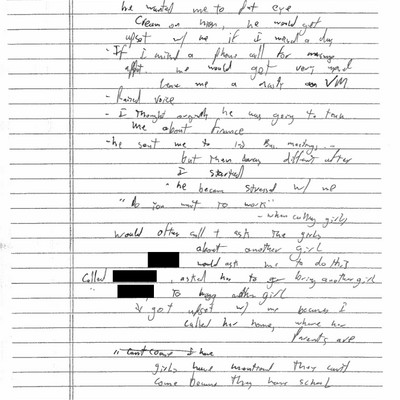 he wanted me to put eye
cream on him, he would get
upset w/ me if I missed a day
- If I missed a phone call for massage
appt. he would get very upset
leave me a nasty VM
- Raised voice
- I thought he was going to teach
me about finance
- he sent me to me
but then different after
I started
- he became w/ me
"Do you want to work"
- when calling girls
would often call + ask the girls
about another girl
would ask me to do this
Called , asked her to bring another girl
" to bring another girl
got upset w/ me because I
called her home, where her
parents are
girls have mentioned they can't
come because they have school